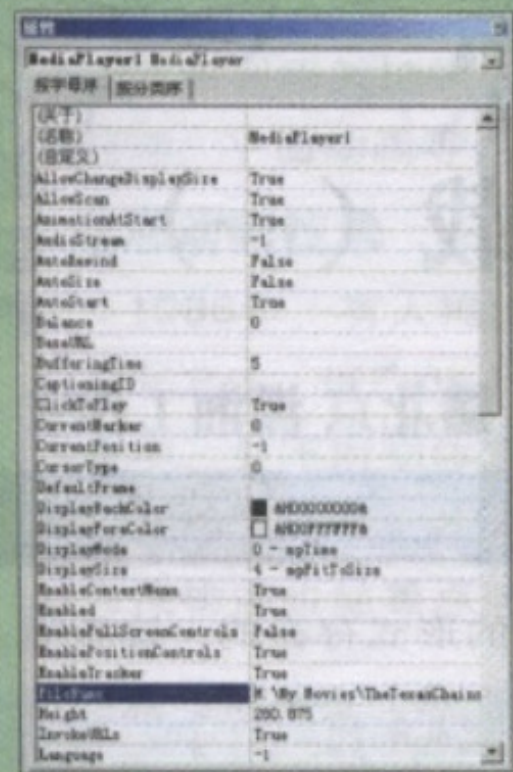 属性
MediaPlayer1 MediaPlayer
按字母序 按分类序
(关于)
(名称) MediaPlayer1
(自定义)
AllowChangeDisplaySize True
AllowScan True
AnimationAtStart True
AudioStream -1
AutoRewind False
AutoSize False
AutoStart True
Balance 0
BaseURL
BufferingTime 5
CaptioningID
ClickToPlay True
CurrentMarker 0
CurrentPosition -1
CursorType 0
DefaultFrame
DisplayBackColor &H00000000&
DisplayForeColor &H00FFFFFF&
DisplayMode 0 - mpTime
DisplaySize 4 - mpFitToSize
EnableContextMenu True
Enabled True
EnableFullScreenControls False
EnablePositionControls True
EnableTracker True
FileName M:\My Movies\TheTexasChains
Height 280.875
InvokeURLs True
Language -1